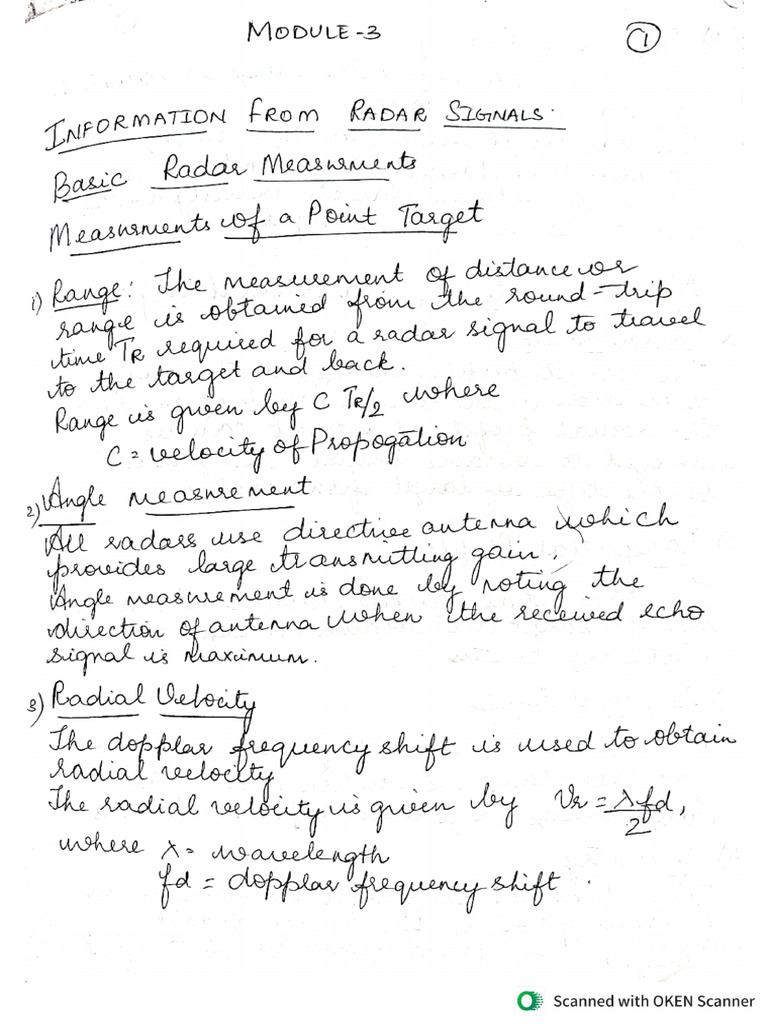 MODULE-3
1
INFORMATION FROM RADAR SIGNALS.
Basic Radar Measurments
Measurments of a Point Target
1) Range: The measurement of distance or
range is obtained from the round-trip
time TR required for a radar signal to travel
to the target and back.
Range is given by C TR/2 where
C = velocity of Propogation
2) Angle measurement
All radars use directive antenna which
provides large transmitting gain.
Angle measurement is done by noting the
direction of antenna when the received echo
signal is maximum.
3) Radial Velocity
The dopplar frequency shift is used to obtain
radial velocity
The radial velocity is given by Vr = λfd/2,
where λ = wavelength
fd = dopplar frequency shift.
Scanned with OKEN Scanner